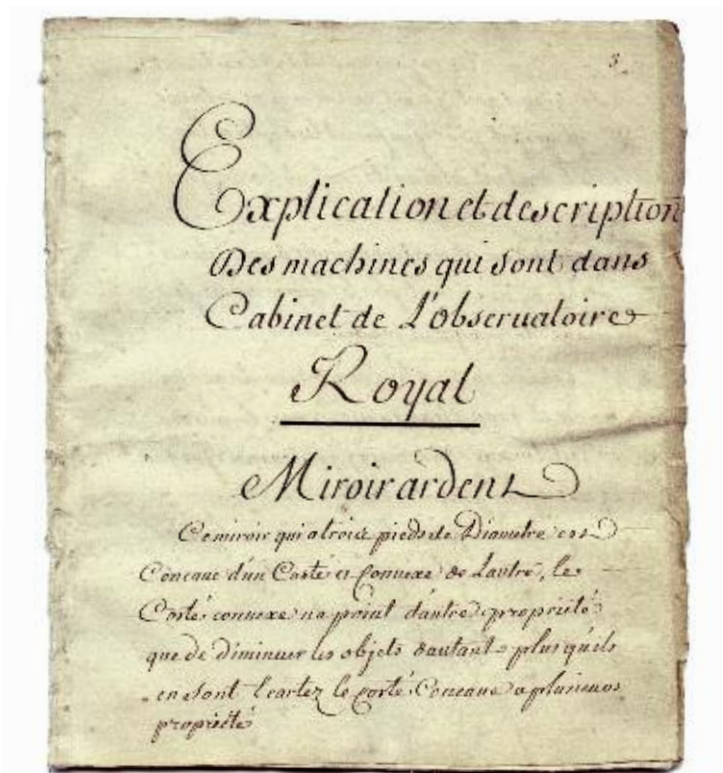 3
Explication et description
Des machines qui sont dans
Cabinet de L'observatoire
Royal
Miroir ardent
Ce miroir qui a trois pieds de Diametre est
Concave d'un Costé et Convexe de Lautre, le
Costé convexe na point dautre propriété
que de diminuer les objets dautant plus quils
en sont Ecartez le costé Concave a plusieurs
propriété